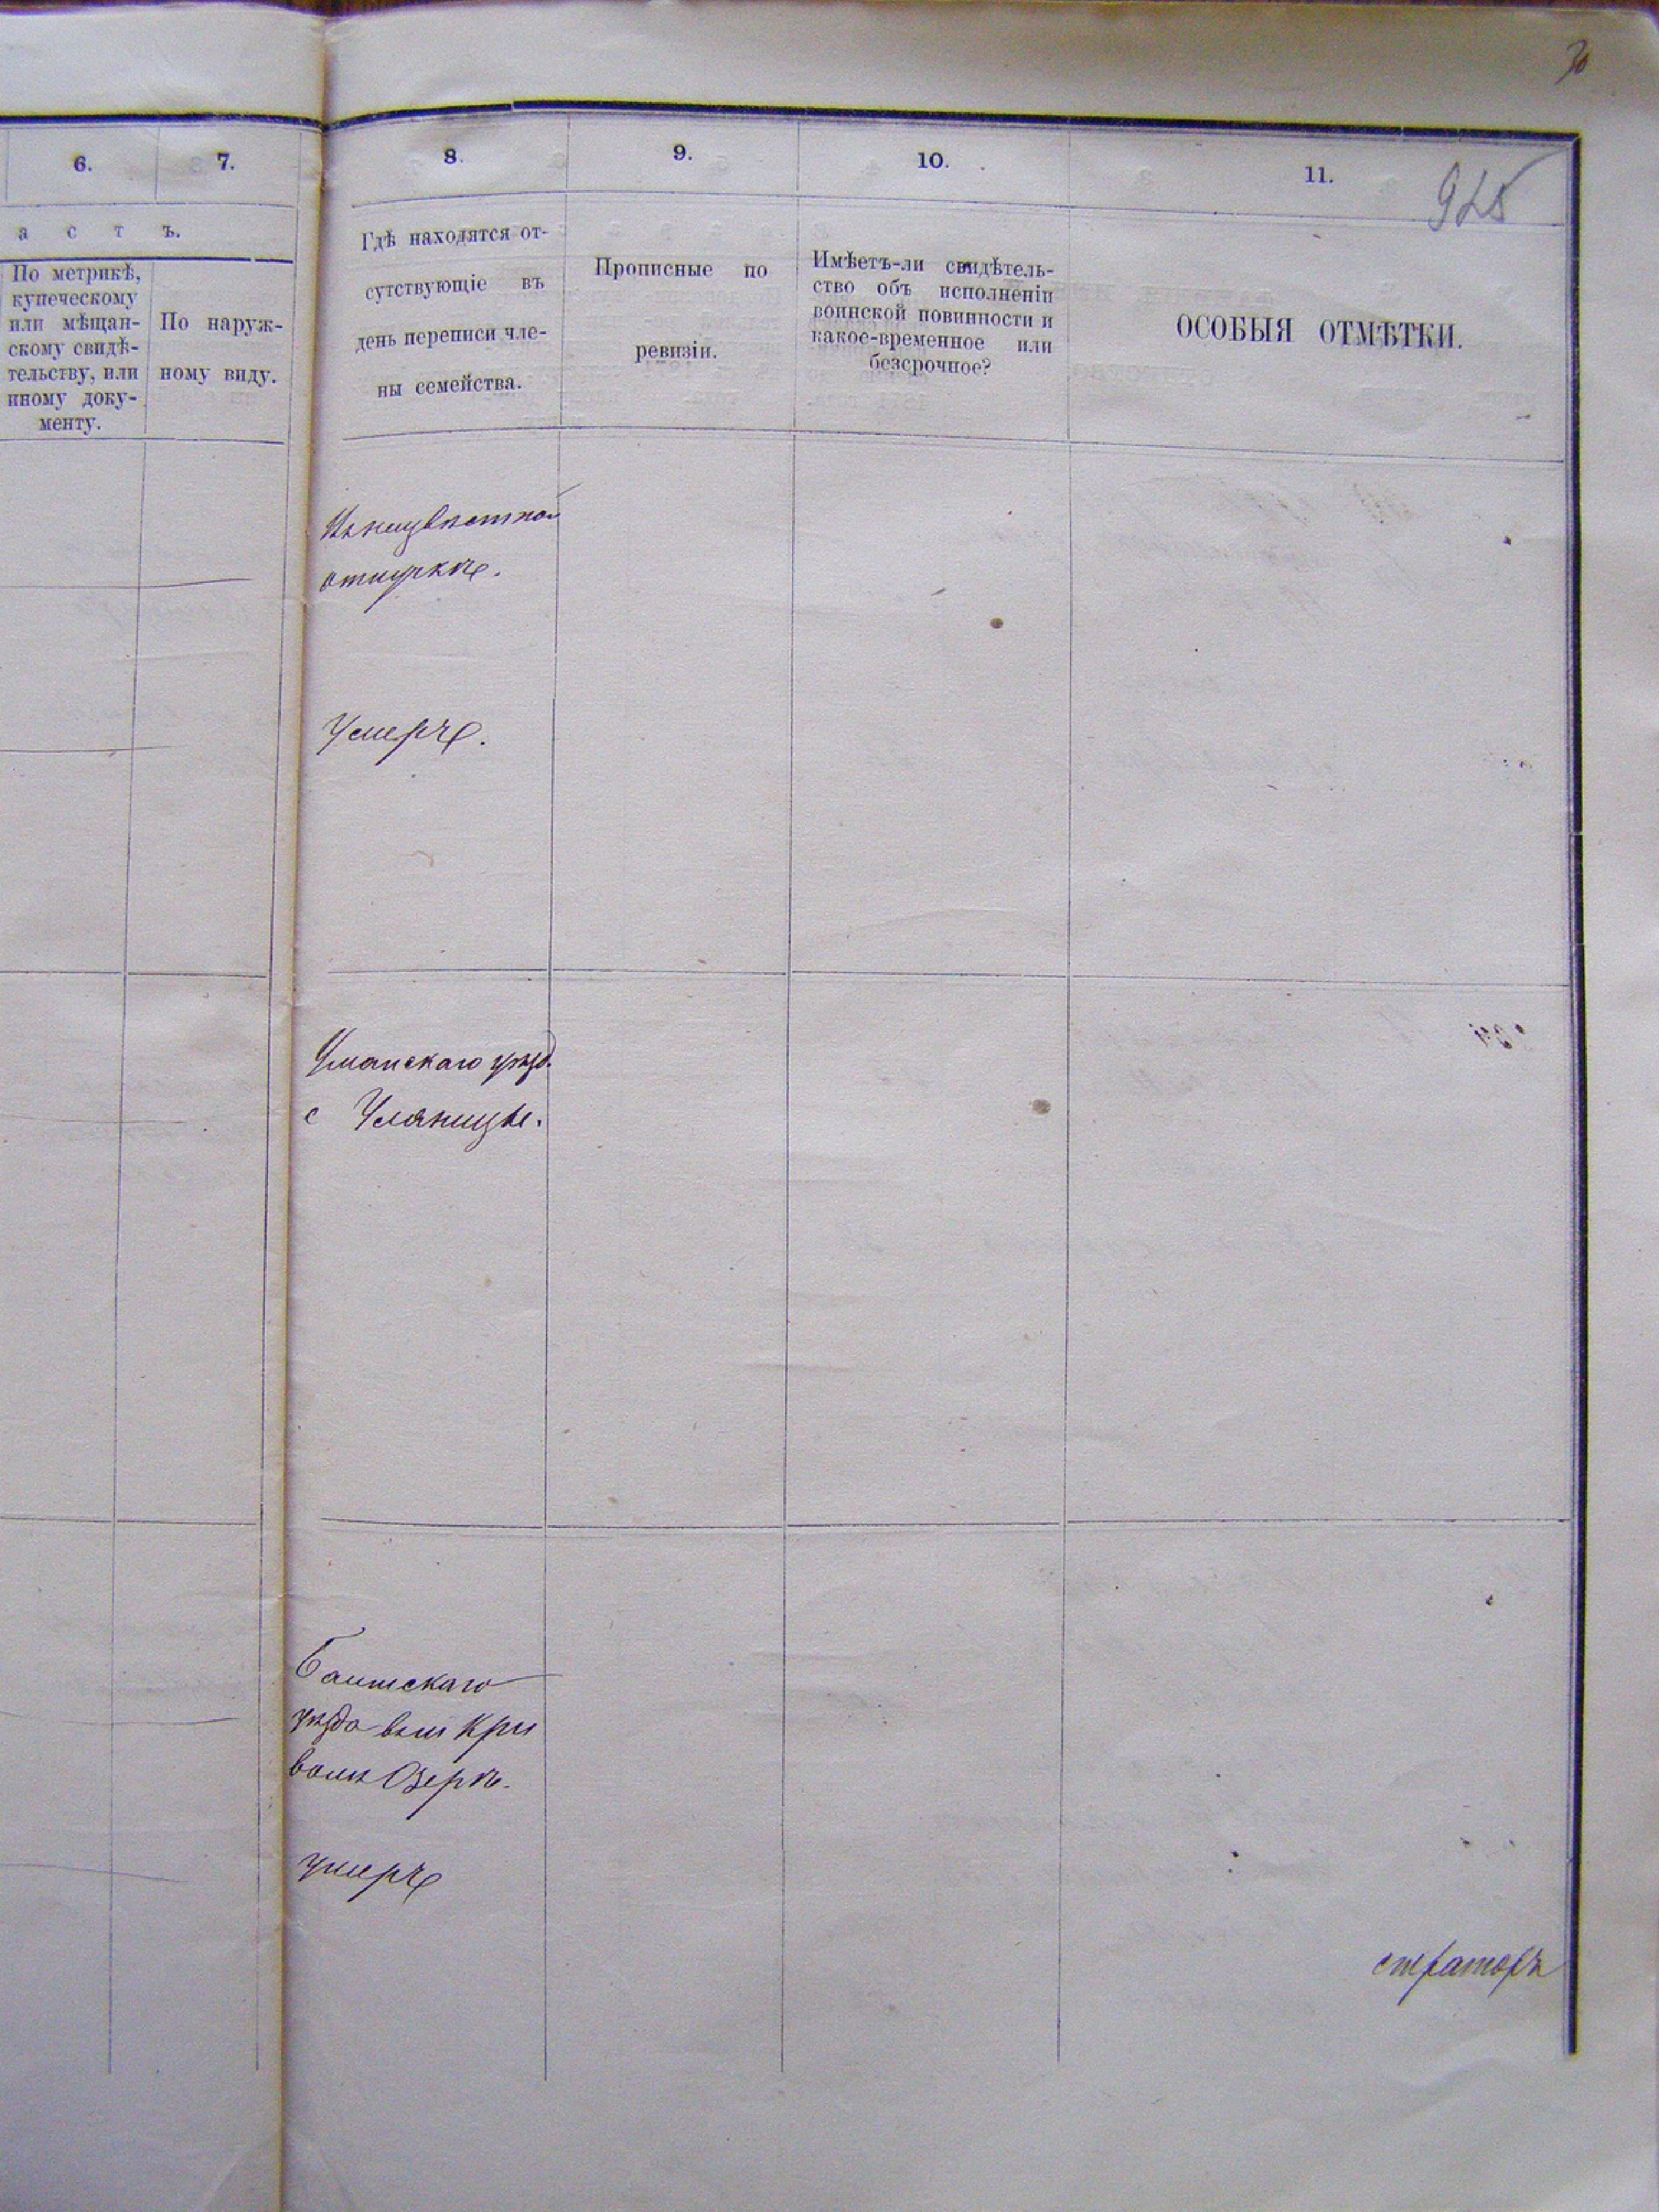 30
6.
7.
8.
9.
10.
11.
925
а с т ъ.
По метрикѣ,
купеческому
или мѣщан-
скому свидѣ-
тельству, или
иному доку-
менту.
По наруж-
ному виду.
Гдѣ находятся от-
сутствующіе въ
день переписи чле-
ны семейства.
Прописные по
ревизіи.
Имѣетъ-ли свидѣтель-
ство объ исполненіи
воинской повинности и
какое-временное или
безсрочное?
ОСОБЫЯ ОТМѢТКИ.
Въ неизвѣстной
отлучкѣ.
Умеръ.
Уманскаго уѣзд.
с
Балтскаго
уѣзда въ м Кри
вомъ Озерѣ.
умеръ
страторъ